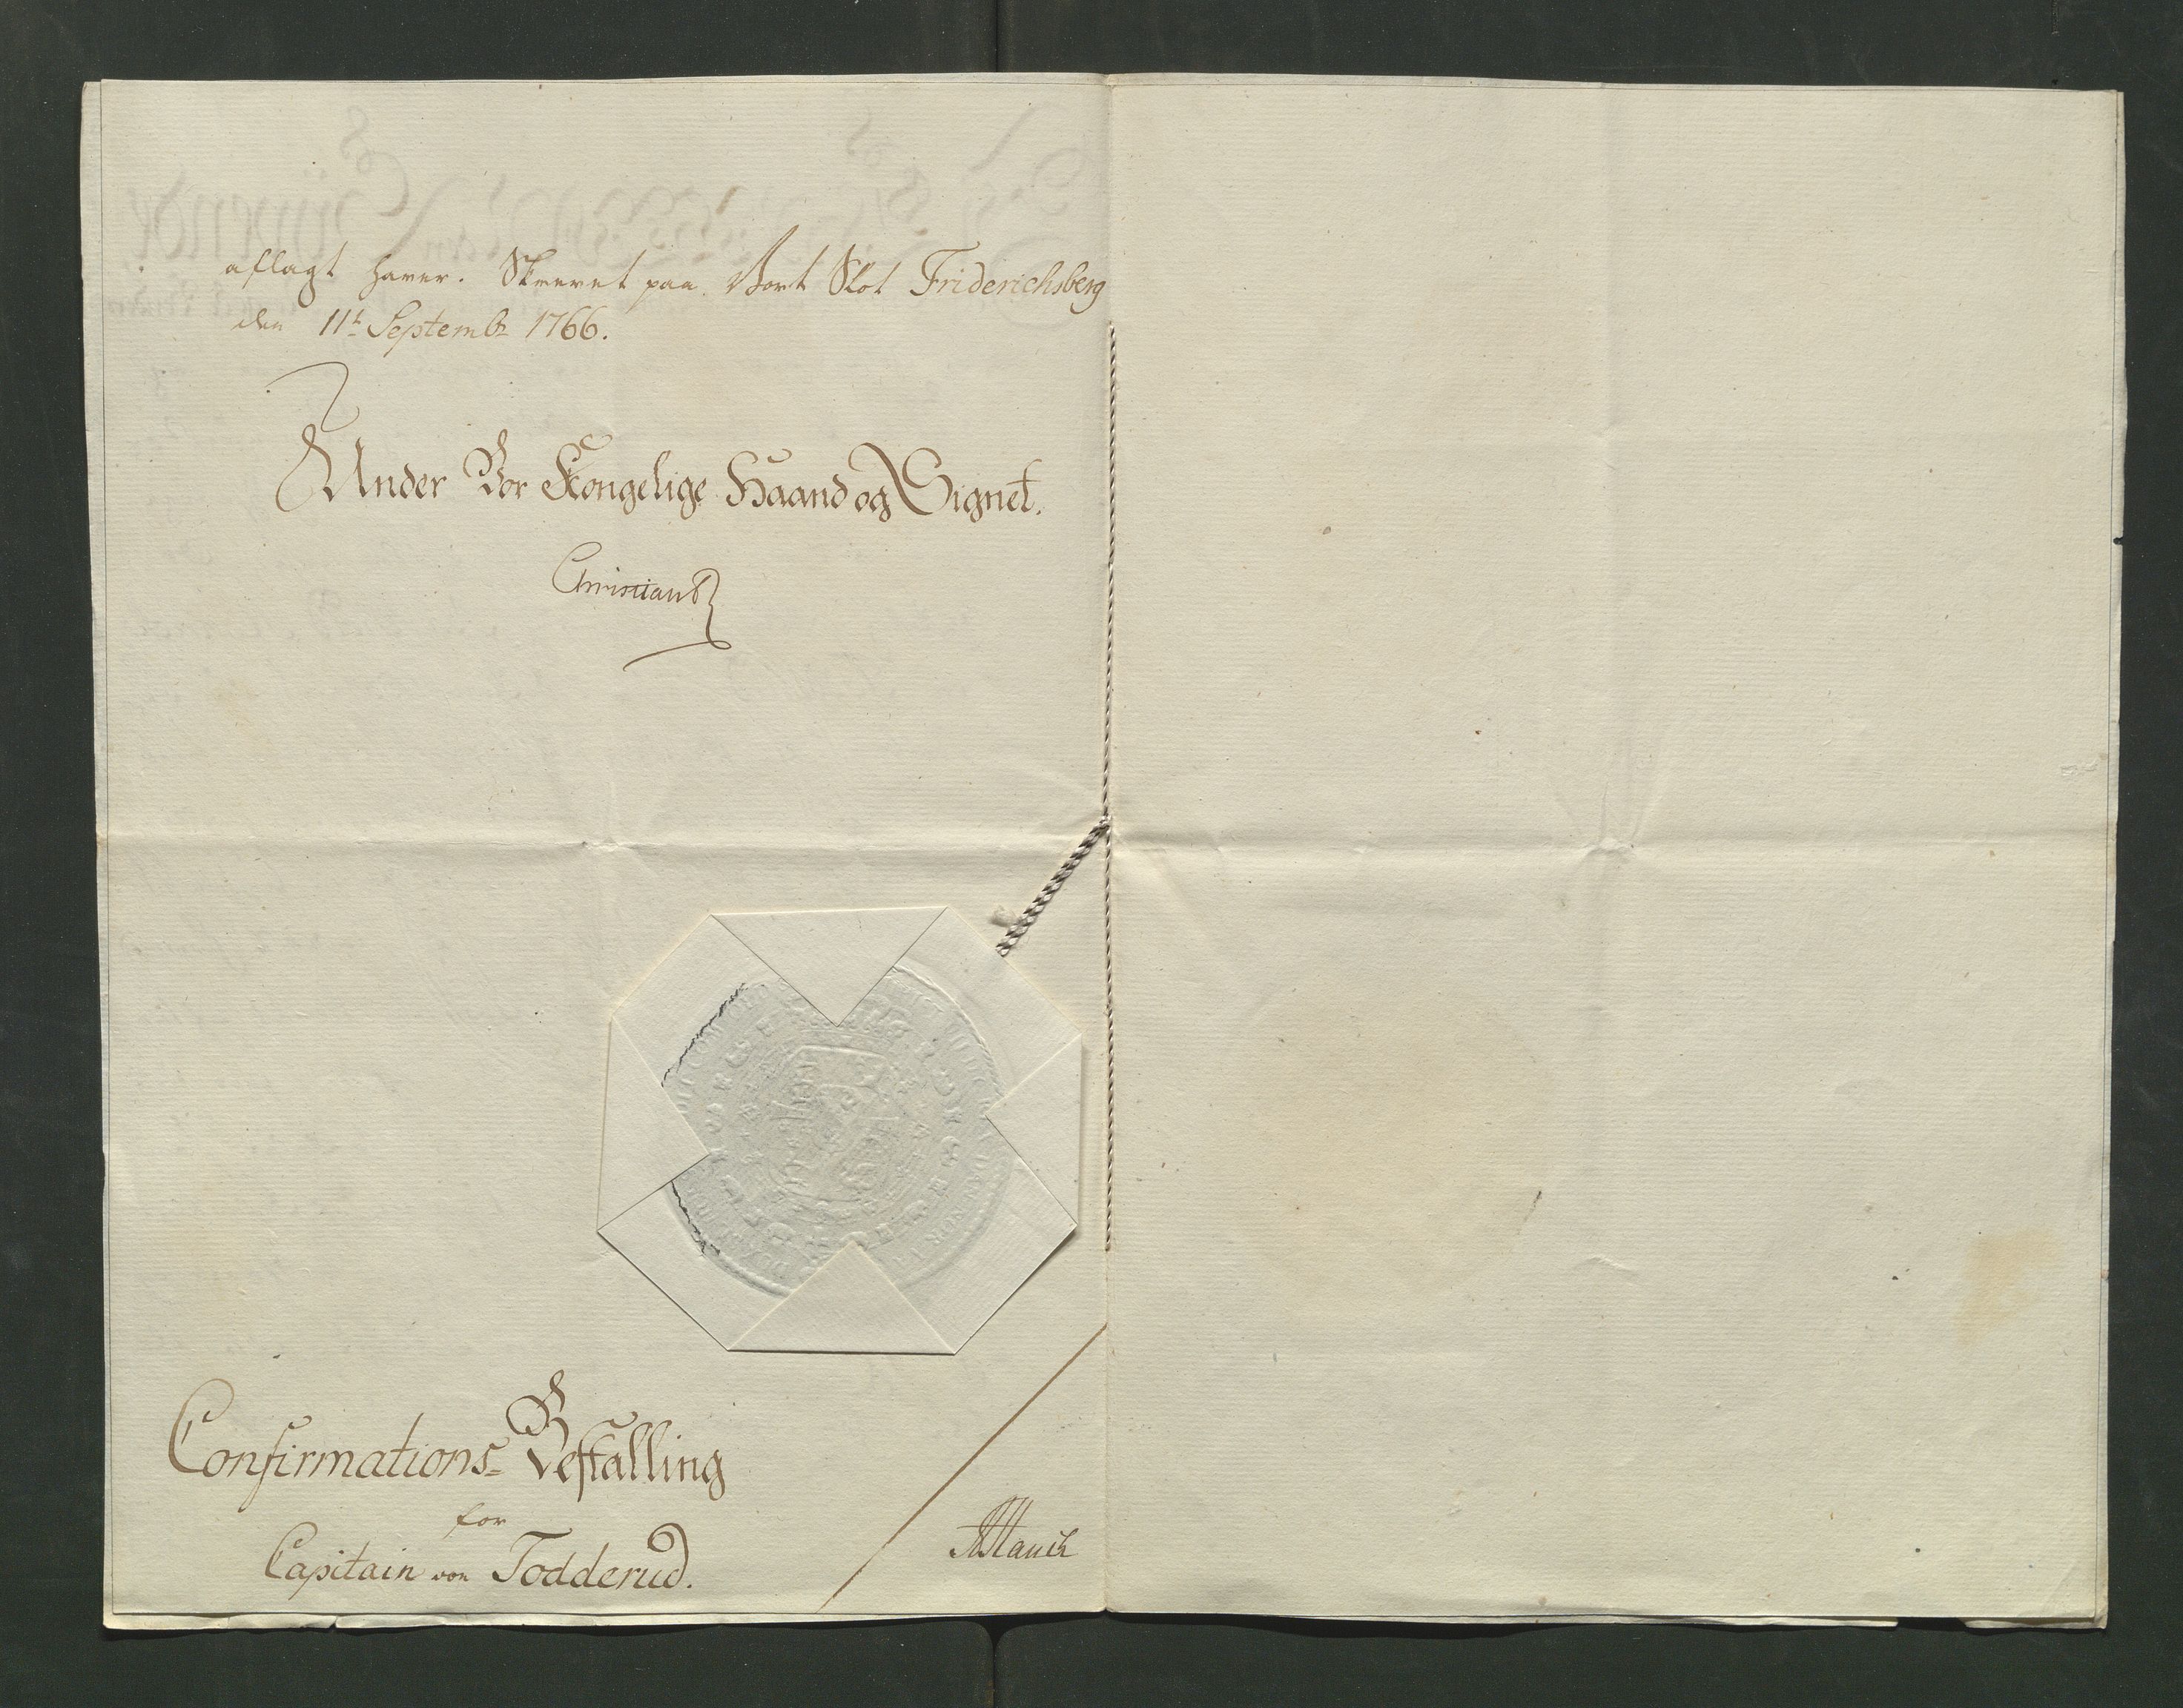 aflagt haver. Skrevet paa Vort Slot Friderichsberg
den 11t Septembr 1766.
Under Vor Kongelige Haand og Signet.
Christian R
Confirmations-Bestalling
for
Capitain von Todderud.